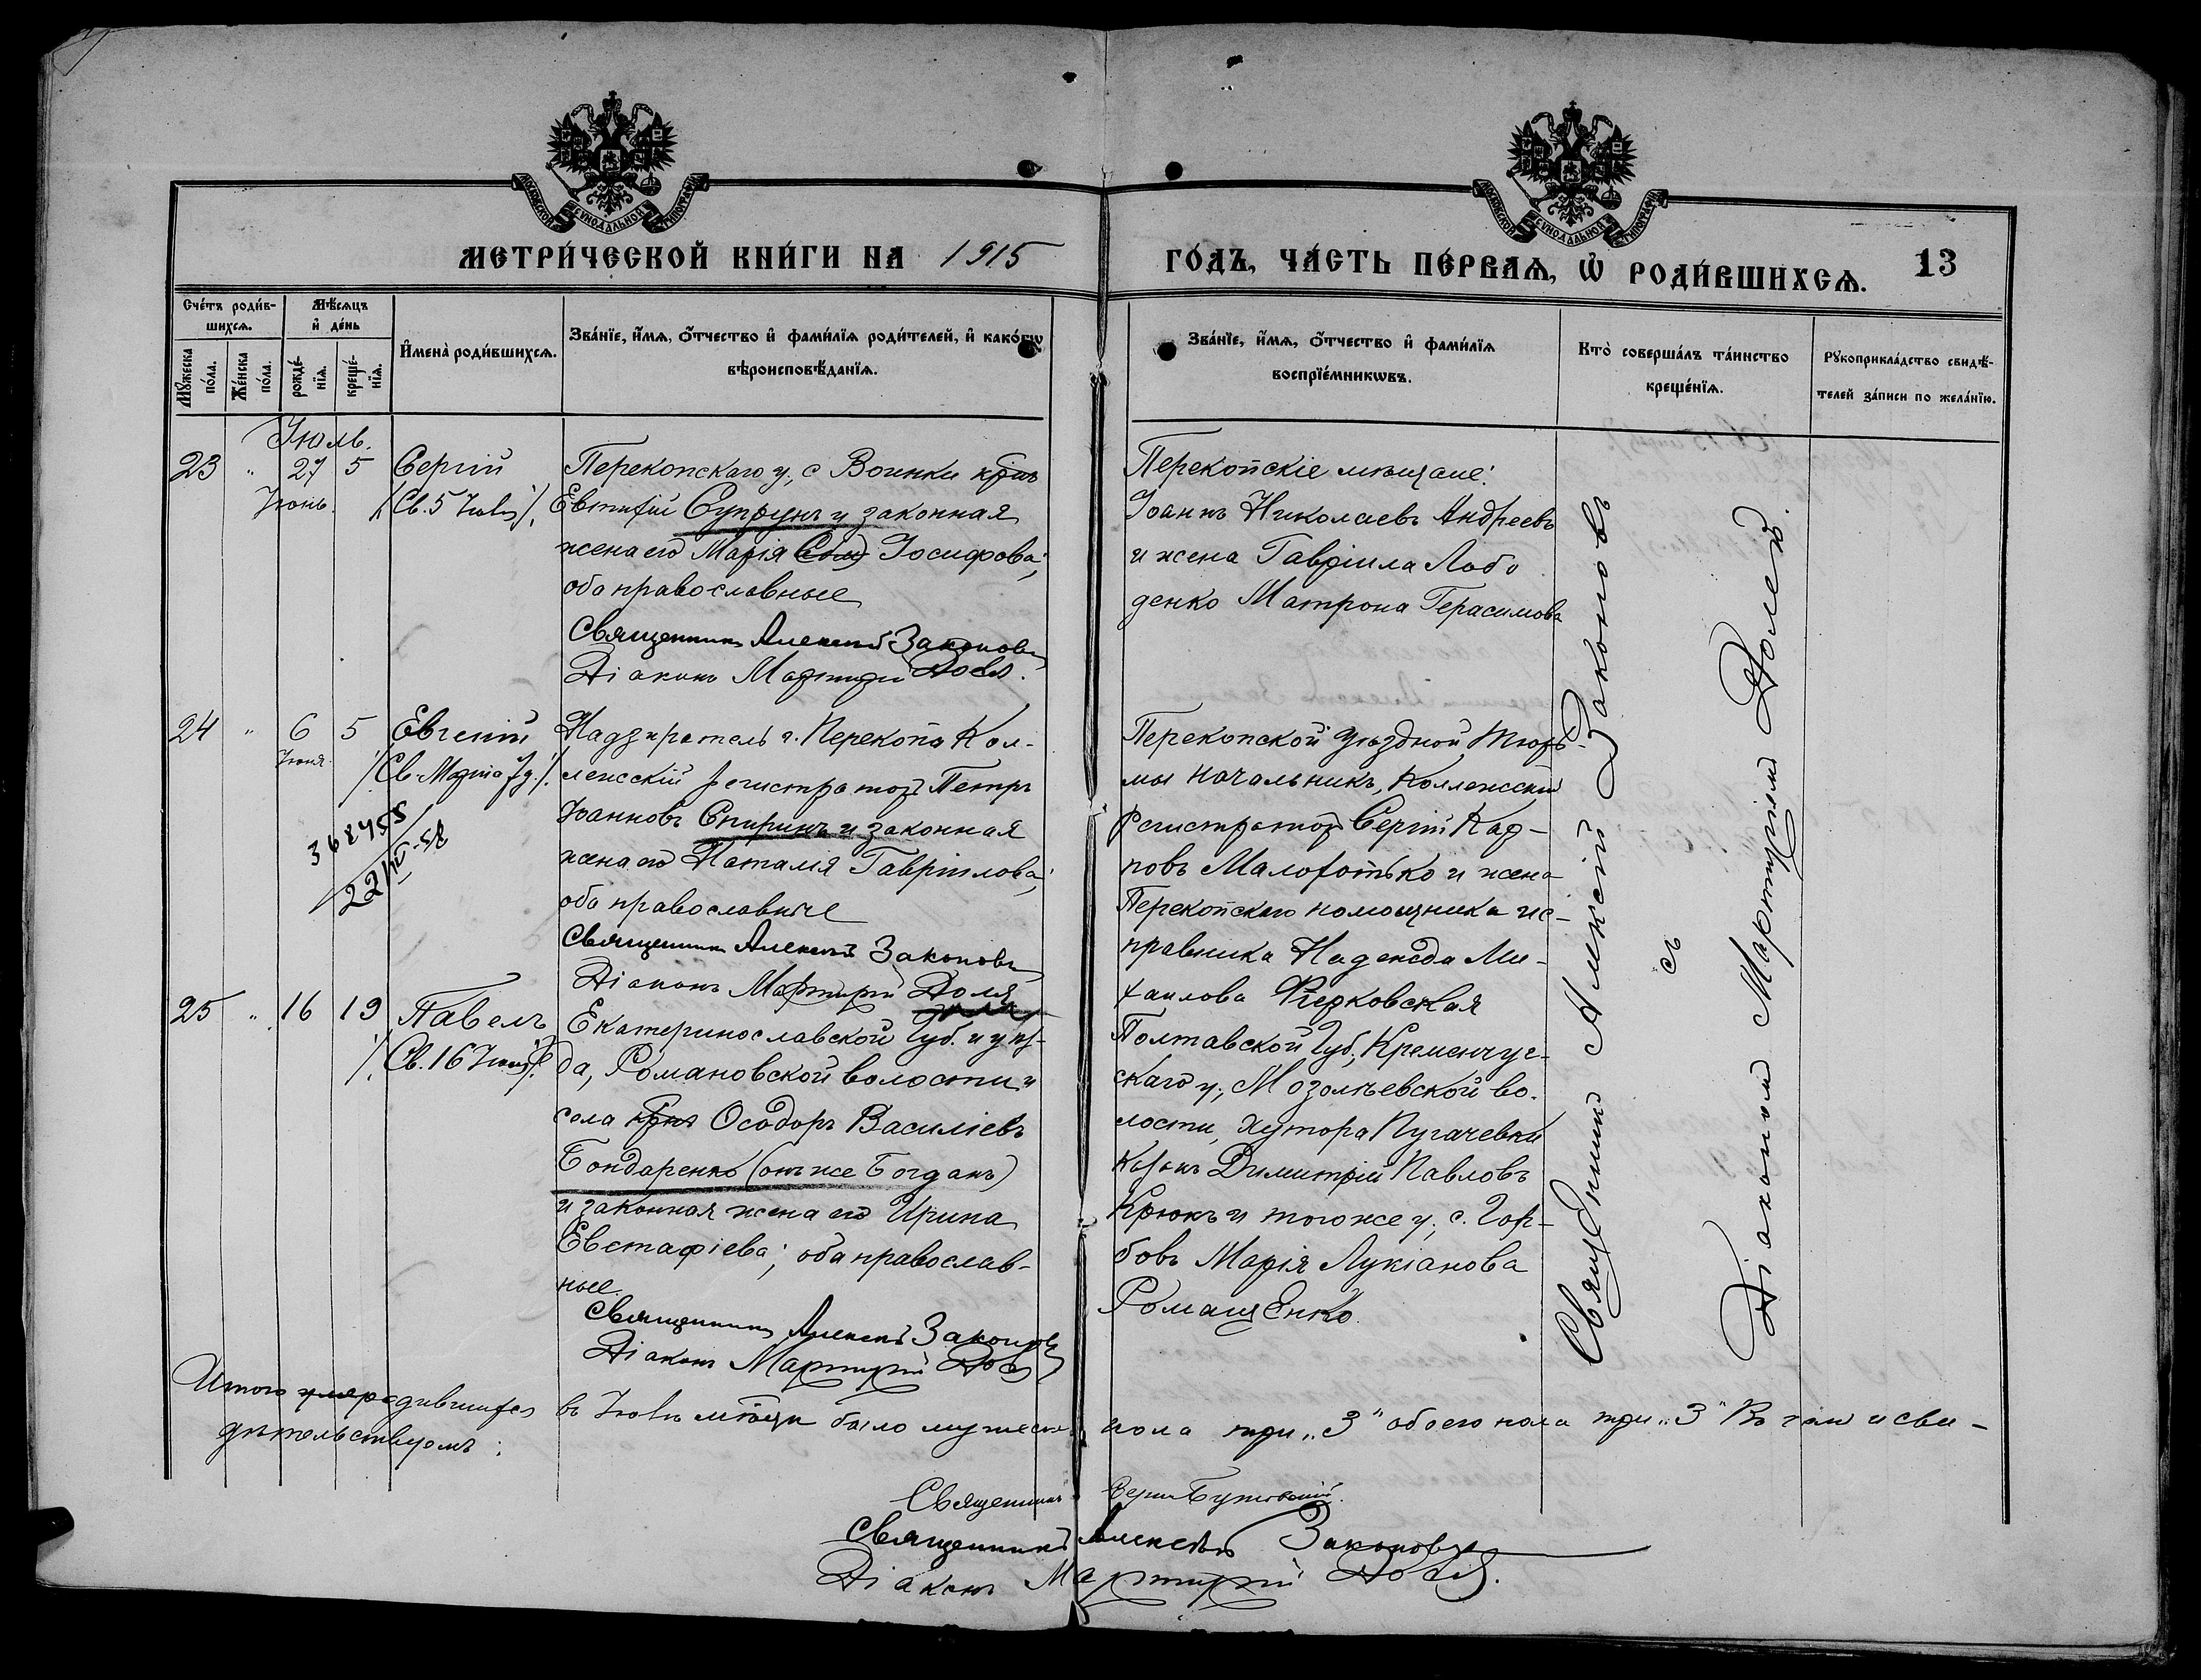 МОСКОВСКОЙ СѴНОДАЛЬНОЙ ТИПОГРАФІИ
МОСКОВСКОЙ СѴНОДАЛЬНОЙ ТИПОГРАФІИ
МЕТРИ́ЧЕСКОЙ КНИ́ГИ НА 1915
ГО́ДЪ, ЧА́СТЬ ПЕ́РВАѦ, Ѿ РОДИ́ВШИХСѦ. 13
Сче́тъ роди́в-
шихсѧ.
Мѣ́сѧцъ
и҆ де́нь
Мꙋ́жеска
по́ла.
Же́нска
по́ла.
рожде́-
нїѧ.
креще́-
нїѧ.
И҆мена̀ роди́вшихсѧ.
Зва́нїе, и҆́мѧ, ѻ҆́тчество и҆ фами́лїѧ роди́телей, и҆ како́гѡ
вѣроисповѣ́данїѧ.
Зва́нїе, и҆́мѧ, ѻ҆́тчество и҆ фами́лїѧ
воспрїе́мникѡвъ.
Кто̀ соверша́лъ та́инство
креще́нїѧ.
Рꙋкоприкла́дство свидѣ́-
телей за́писи по жела́нїю.
Іюль.
23 " 27 5 Сергій
Іюнь.
/Св. 5 Іюля/.
Перекопскаго у., с Воинки крнъ
Евтифій Супрунъ и законная
жена его Марія Іосифова;
оба православные
Священникъ Алексій Законовъ
Діаконъ Мартирій Доля.
Перекопскіе мѣщане:
Іоаннъ Николаевъ Андреевъ
и жена Гавріила Лобо
денко Матрона Герасимова
24 " 6 5 Евгеній
Іюня.
/Св. Марта 7 д./.
368455
22/IV-58
Надзиратель г. Перекопа Кол-
лежскій регистраторъ Петръ
Іоанновъ Спиринъ и законная
жена его Наталія Гавріилова;
оба православные
Священникъ Алексій Законовъ
Діаконъ Мартирій Доля
Перекопской уѣздной Тюрь-
мы начальникъ, Коллежскій
регистраторъ Сергій Кар-
повъ Малохатько и жена
Перекопскаго помощника ис-
правника Надежда Ми-
хаилова
25 " 16 19 Павелъ
/Св. 16 Іюля/.
Екатеринославской Губ. и уѣз-
да, Романовской волости и
села крнъ Ѳеодоръ Василіевъ
Бондаренко (онъ же Богданъ)
и законная жена его Ирина
Евстафіева; оба православ-
ные.
Священникъ Алексій Законовъ
Діаконъ Мартирій Доля
Полтавской Губ., Кременчуг-
скаго у., Мозолѣевской во-
лости, хутора Пугачевки
козакъ Димитрій Павловъ
Крюкъ и того же у. с. Гор-
бовъ Марія Лукіанова
Романенко.
Священникъ Алексій Законовъ
съ
Діакономъ Мартиріемъ Долею.
Итого родившихся въ Іюлѣ мѣсяцѣ было мужеска пола три "3" обоего пола три "3" Въ чемъ и сви-
дѣтельствуемъ:
Священникъ
Священникъ Алексій Законовъ
Діаконъ Мартирій Доля.